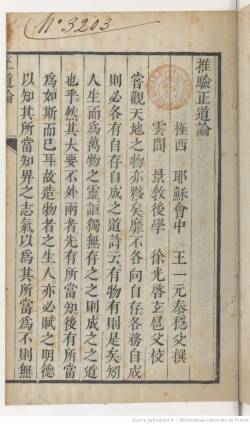 N° 3203
推驗正道論
極西 耶穌會中 王一元泰穩父撰
雲間 景教後學 徐光啓玄扈父校
嘗觀天地之物亦夥矣靡不各向自存各務自成
則必各有自存自成之道詩云有物有則是矣矧
人生而為萬物之靈詎獨無存之之則成之之道
也乎然其大要不外兩者先有所當知後有所當
為如斯而已耳故造物者之生人亦必賦之明德
以知其所當知畀之志氣以為其所當為不則無
正道論
Source gallica.bnf.fr / Bibliothèque nationale de France